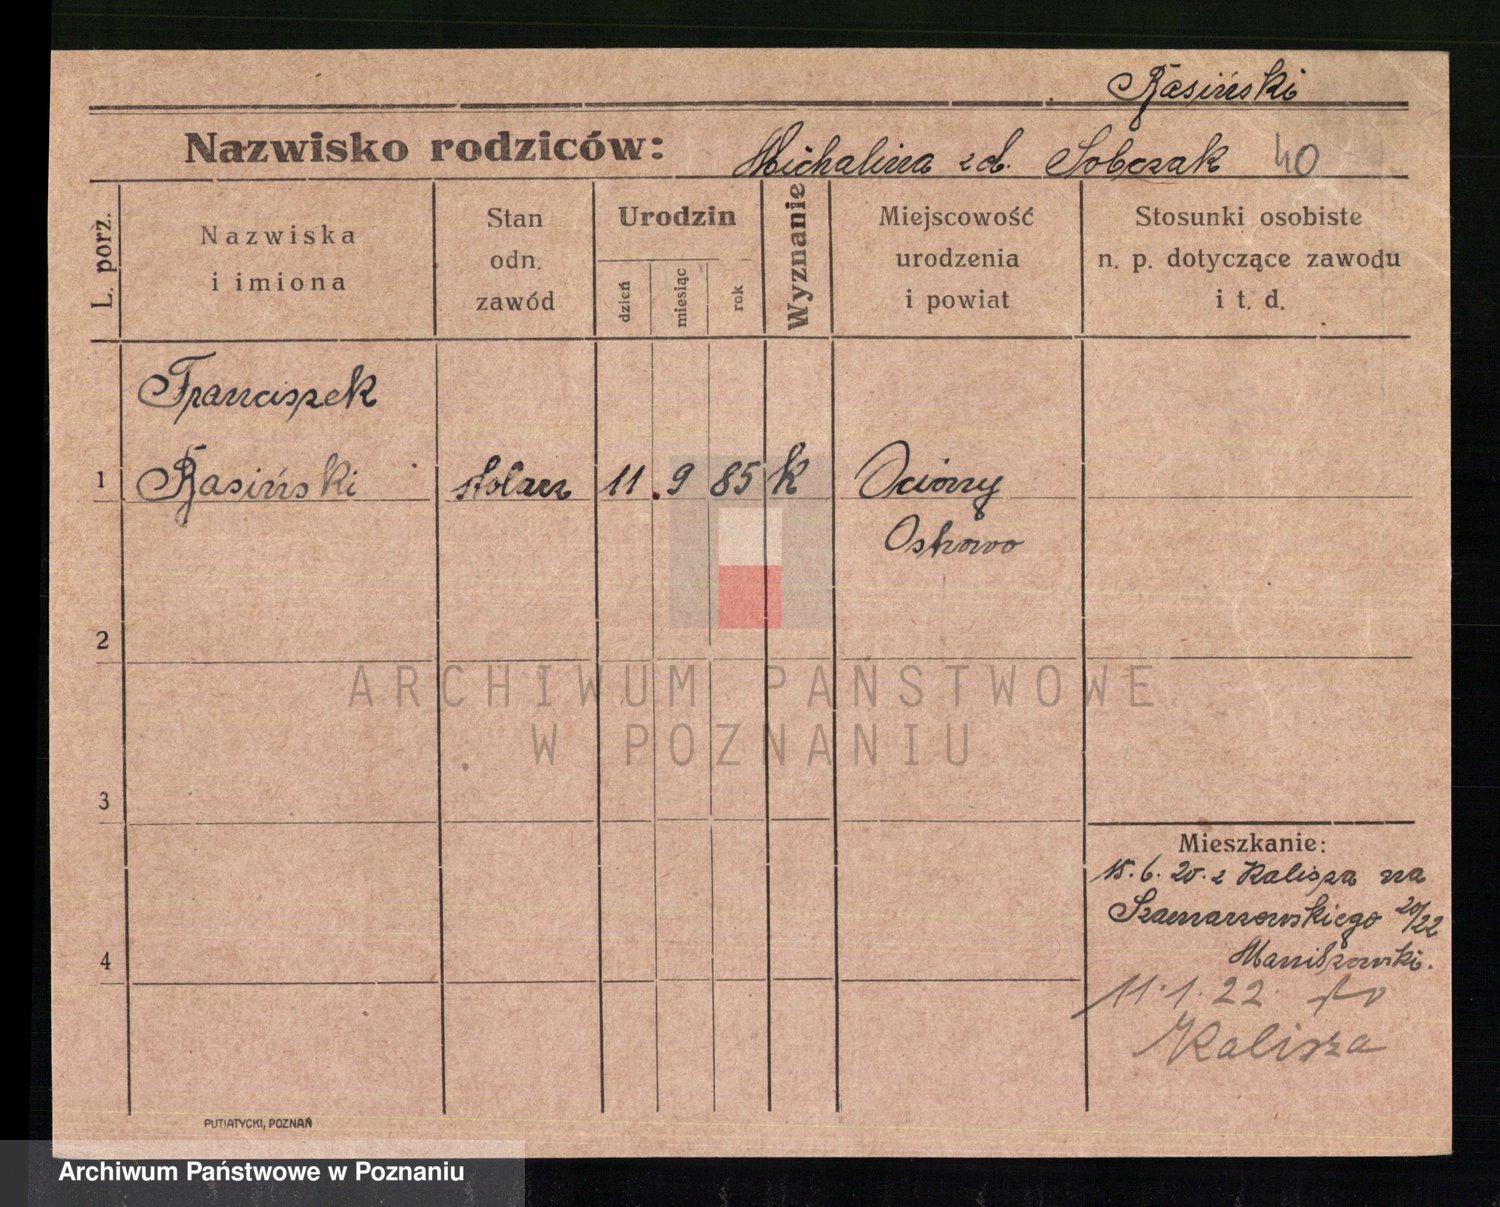 Rasiński
Nazwisko rodziców: Michalina zd. Sobczak 40
L. porz.
Nazwiska i imiona
Stan odn. zawód
Urodzin
dzień miesiąc rok
Wyznanie
Miejscowość urodzenia i powiat
Stosunki osobiste n. p. dotyczące zawodu i t. d.
Franciszek
1 Rasiński stolarz 11 . 9 85 k Ociąży
Ostrowo
2
ARCHIWUM PAŃSTWOWE
W POZNANIU
3
Mieszkanie:
15.6.20. z Kalisza na
Szamarzewskiego 20/22
4
11.1.22. do
Kalisza
PUTIATYCKI, POZNAŃ
Archiwum Państwowe w Poznaniu